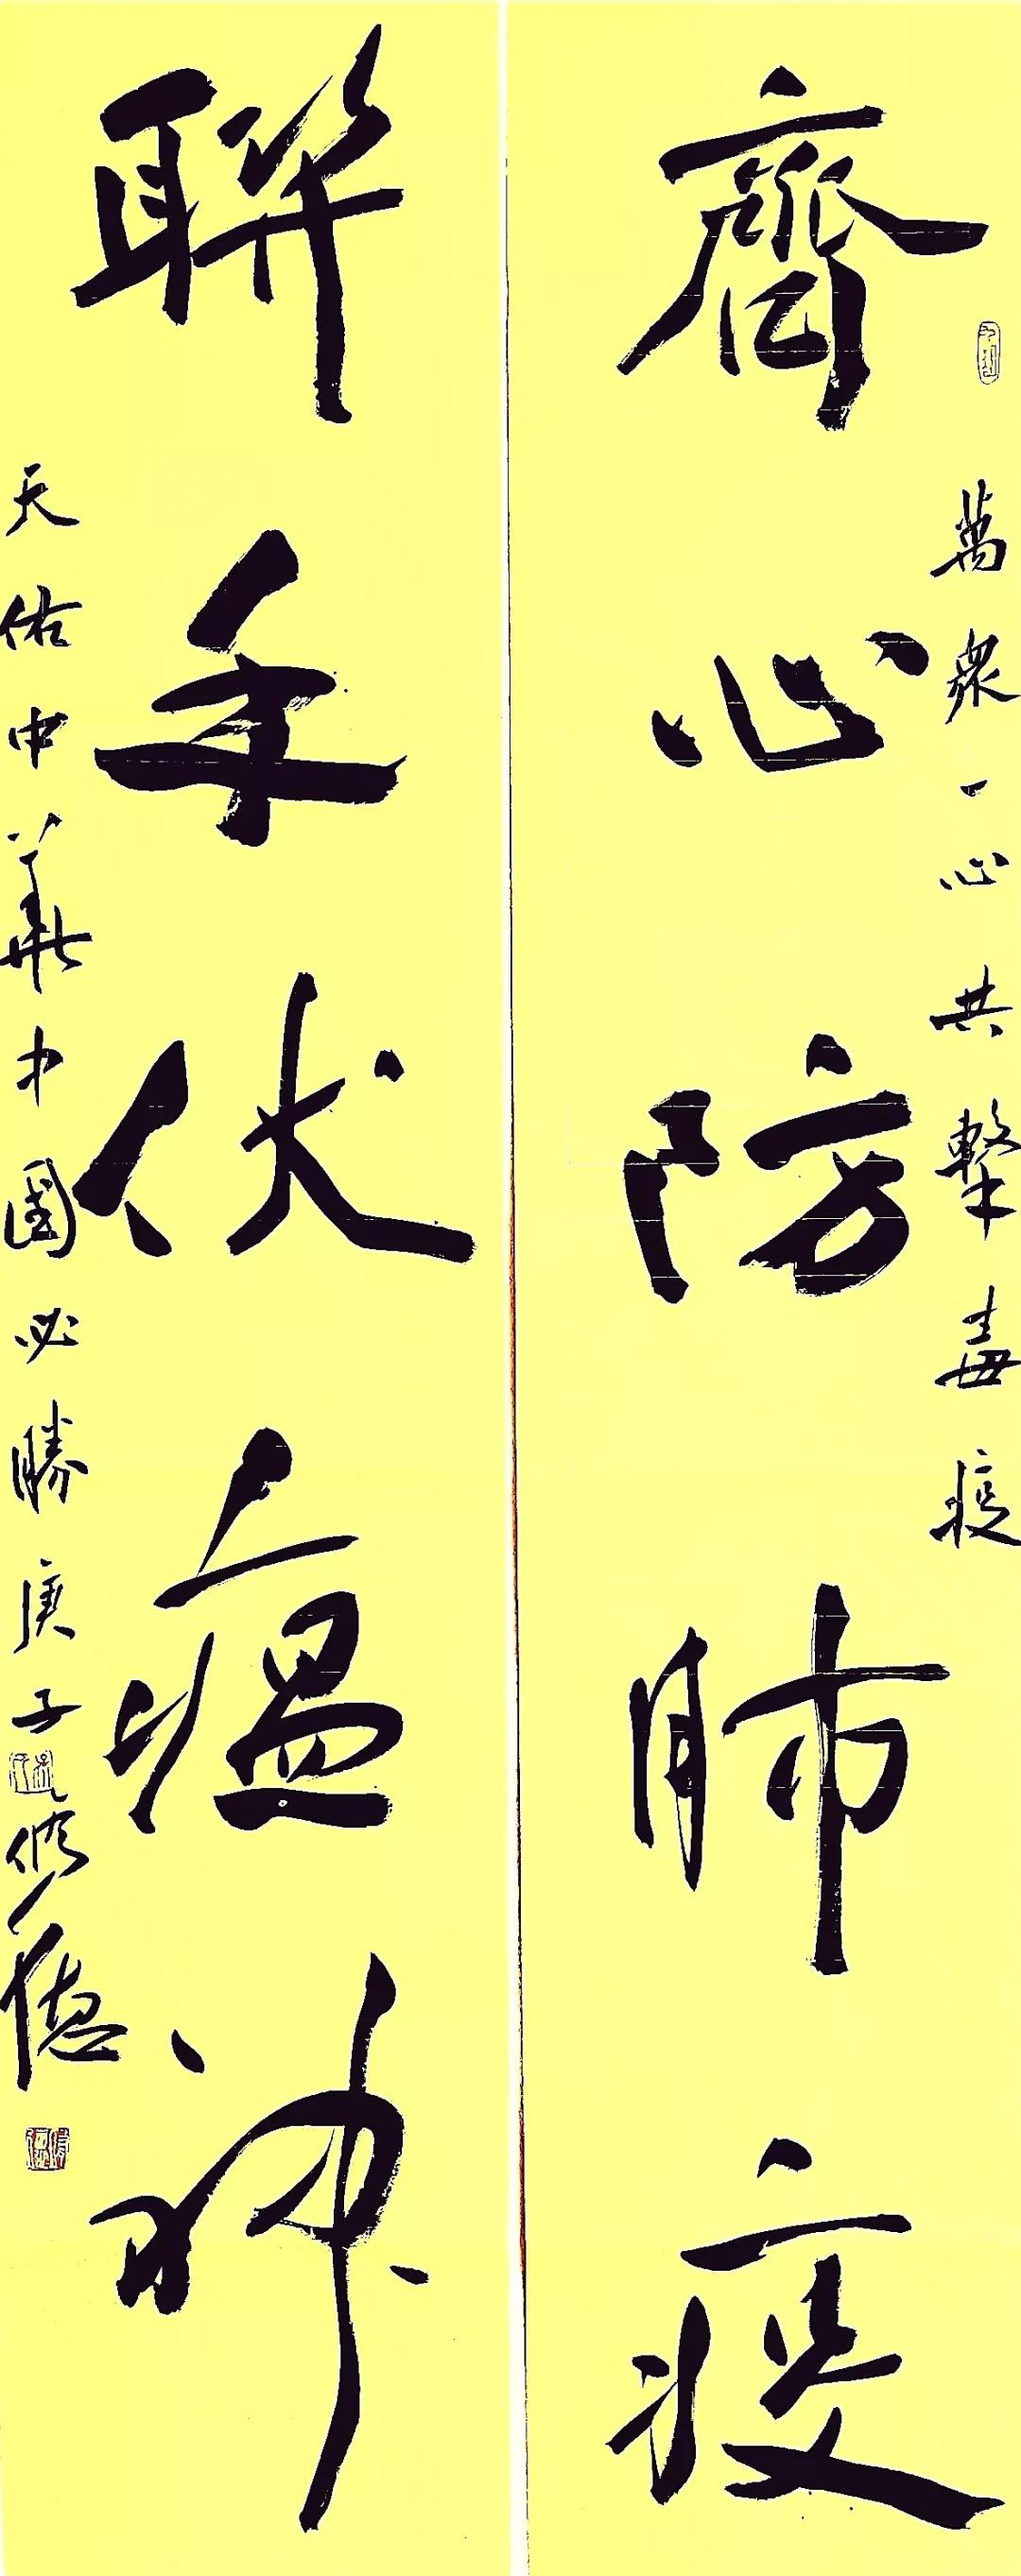 萬衆一心共擊毒疫
齊心防肺疫
聯手伏瘟神
天佑中華中國必勝庚子修德